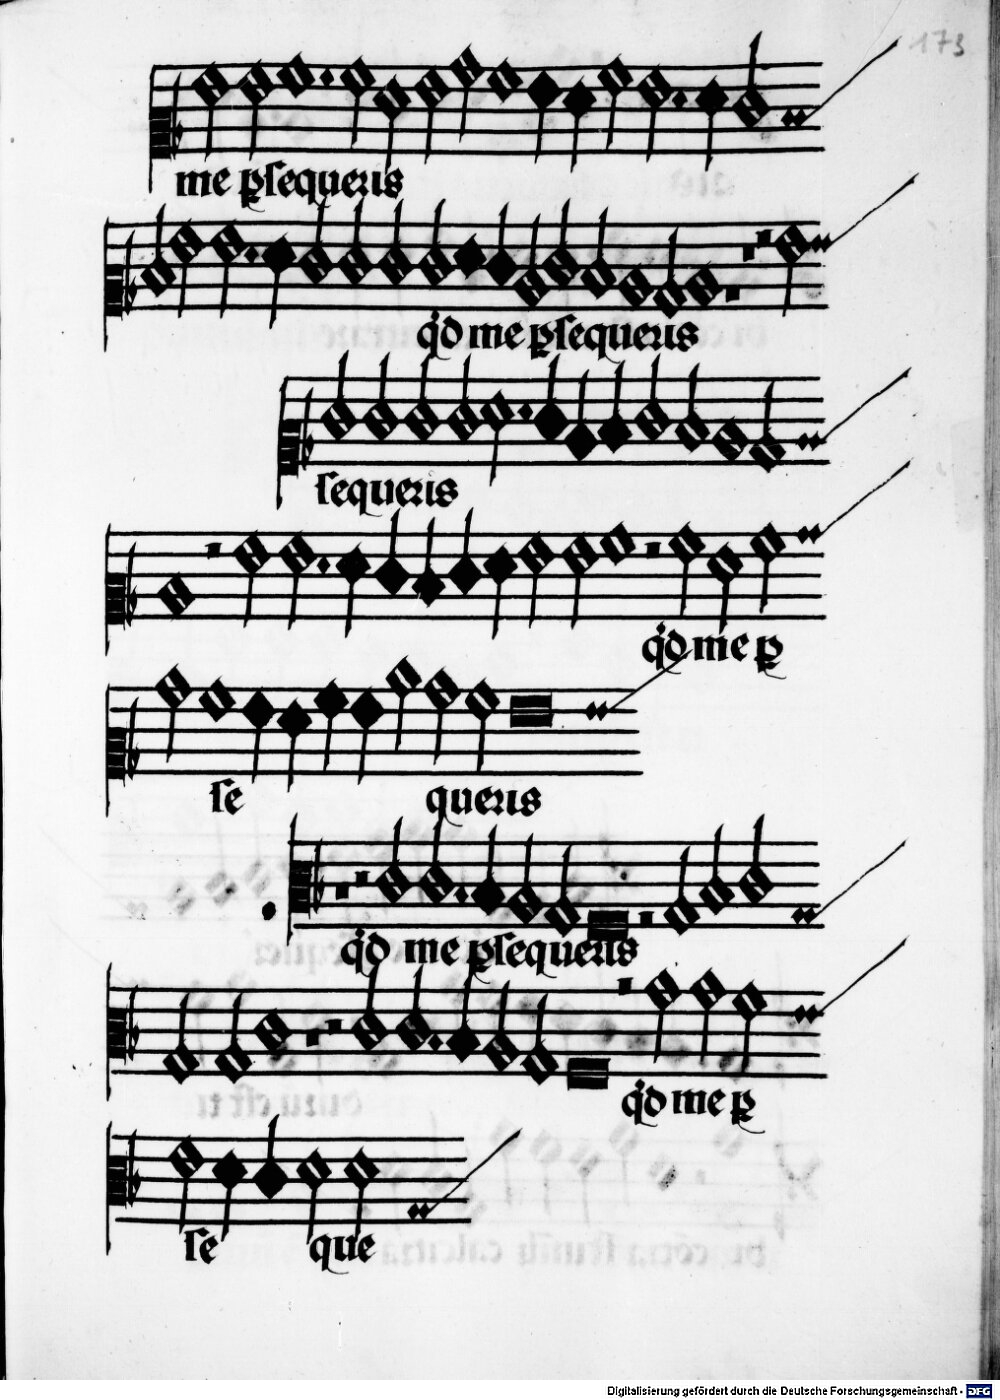 173
me ꝑſequeris
qͥd me ꝑſequeris
ſequeris
qͥd me ꝑ
ſe queris
qͥd me ꝑſequeris
qͥd me ꝑ
ſe que
Digitalisierung gefördert durch die Deutsche Forschungsgemeinschaft - DFG